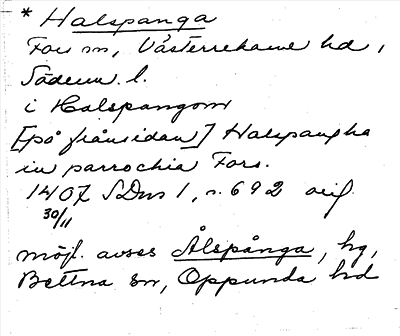 * Halspanga
Fors sn, Västerrekarne hd,
Söderm. l.
i Halspangom
[på frånsidan] Halspangha
in parrochia Fors.
1407 SDns 1, s. 692 orig.
30/11
möjl. avses Ålspånga, hg,
Bettna sn, Oppunda hd